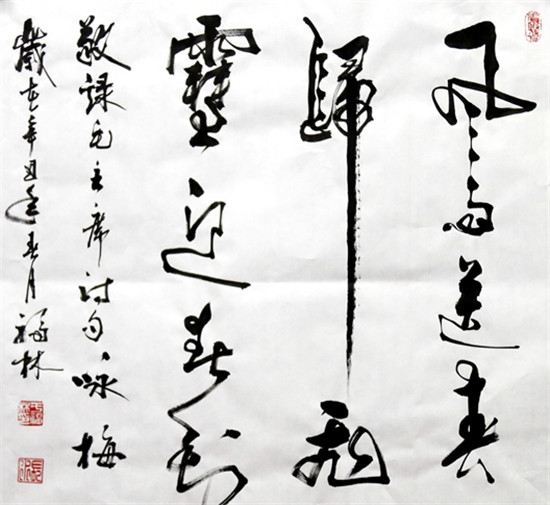 风雨送春
归飛
雪迎春到
敬録毛主席诗句咏梅
歲在辛丑年春月福林